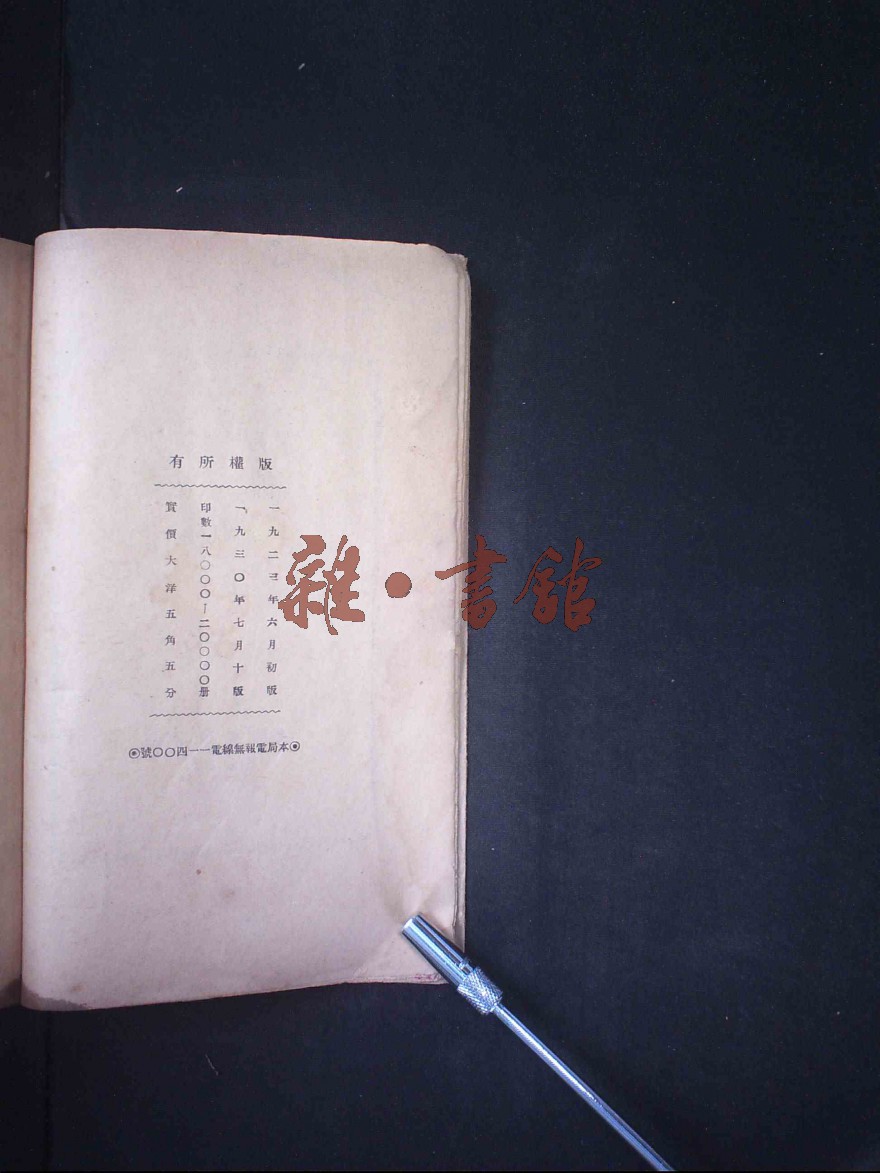 版權所有
一九二三年六月初版
一九三〇年七月十版
印數一八〇〇〇—二〇〇〇〇册
實價大洋五角五分
◉本局電報無線電一一四〇〇號◉
雜·書館